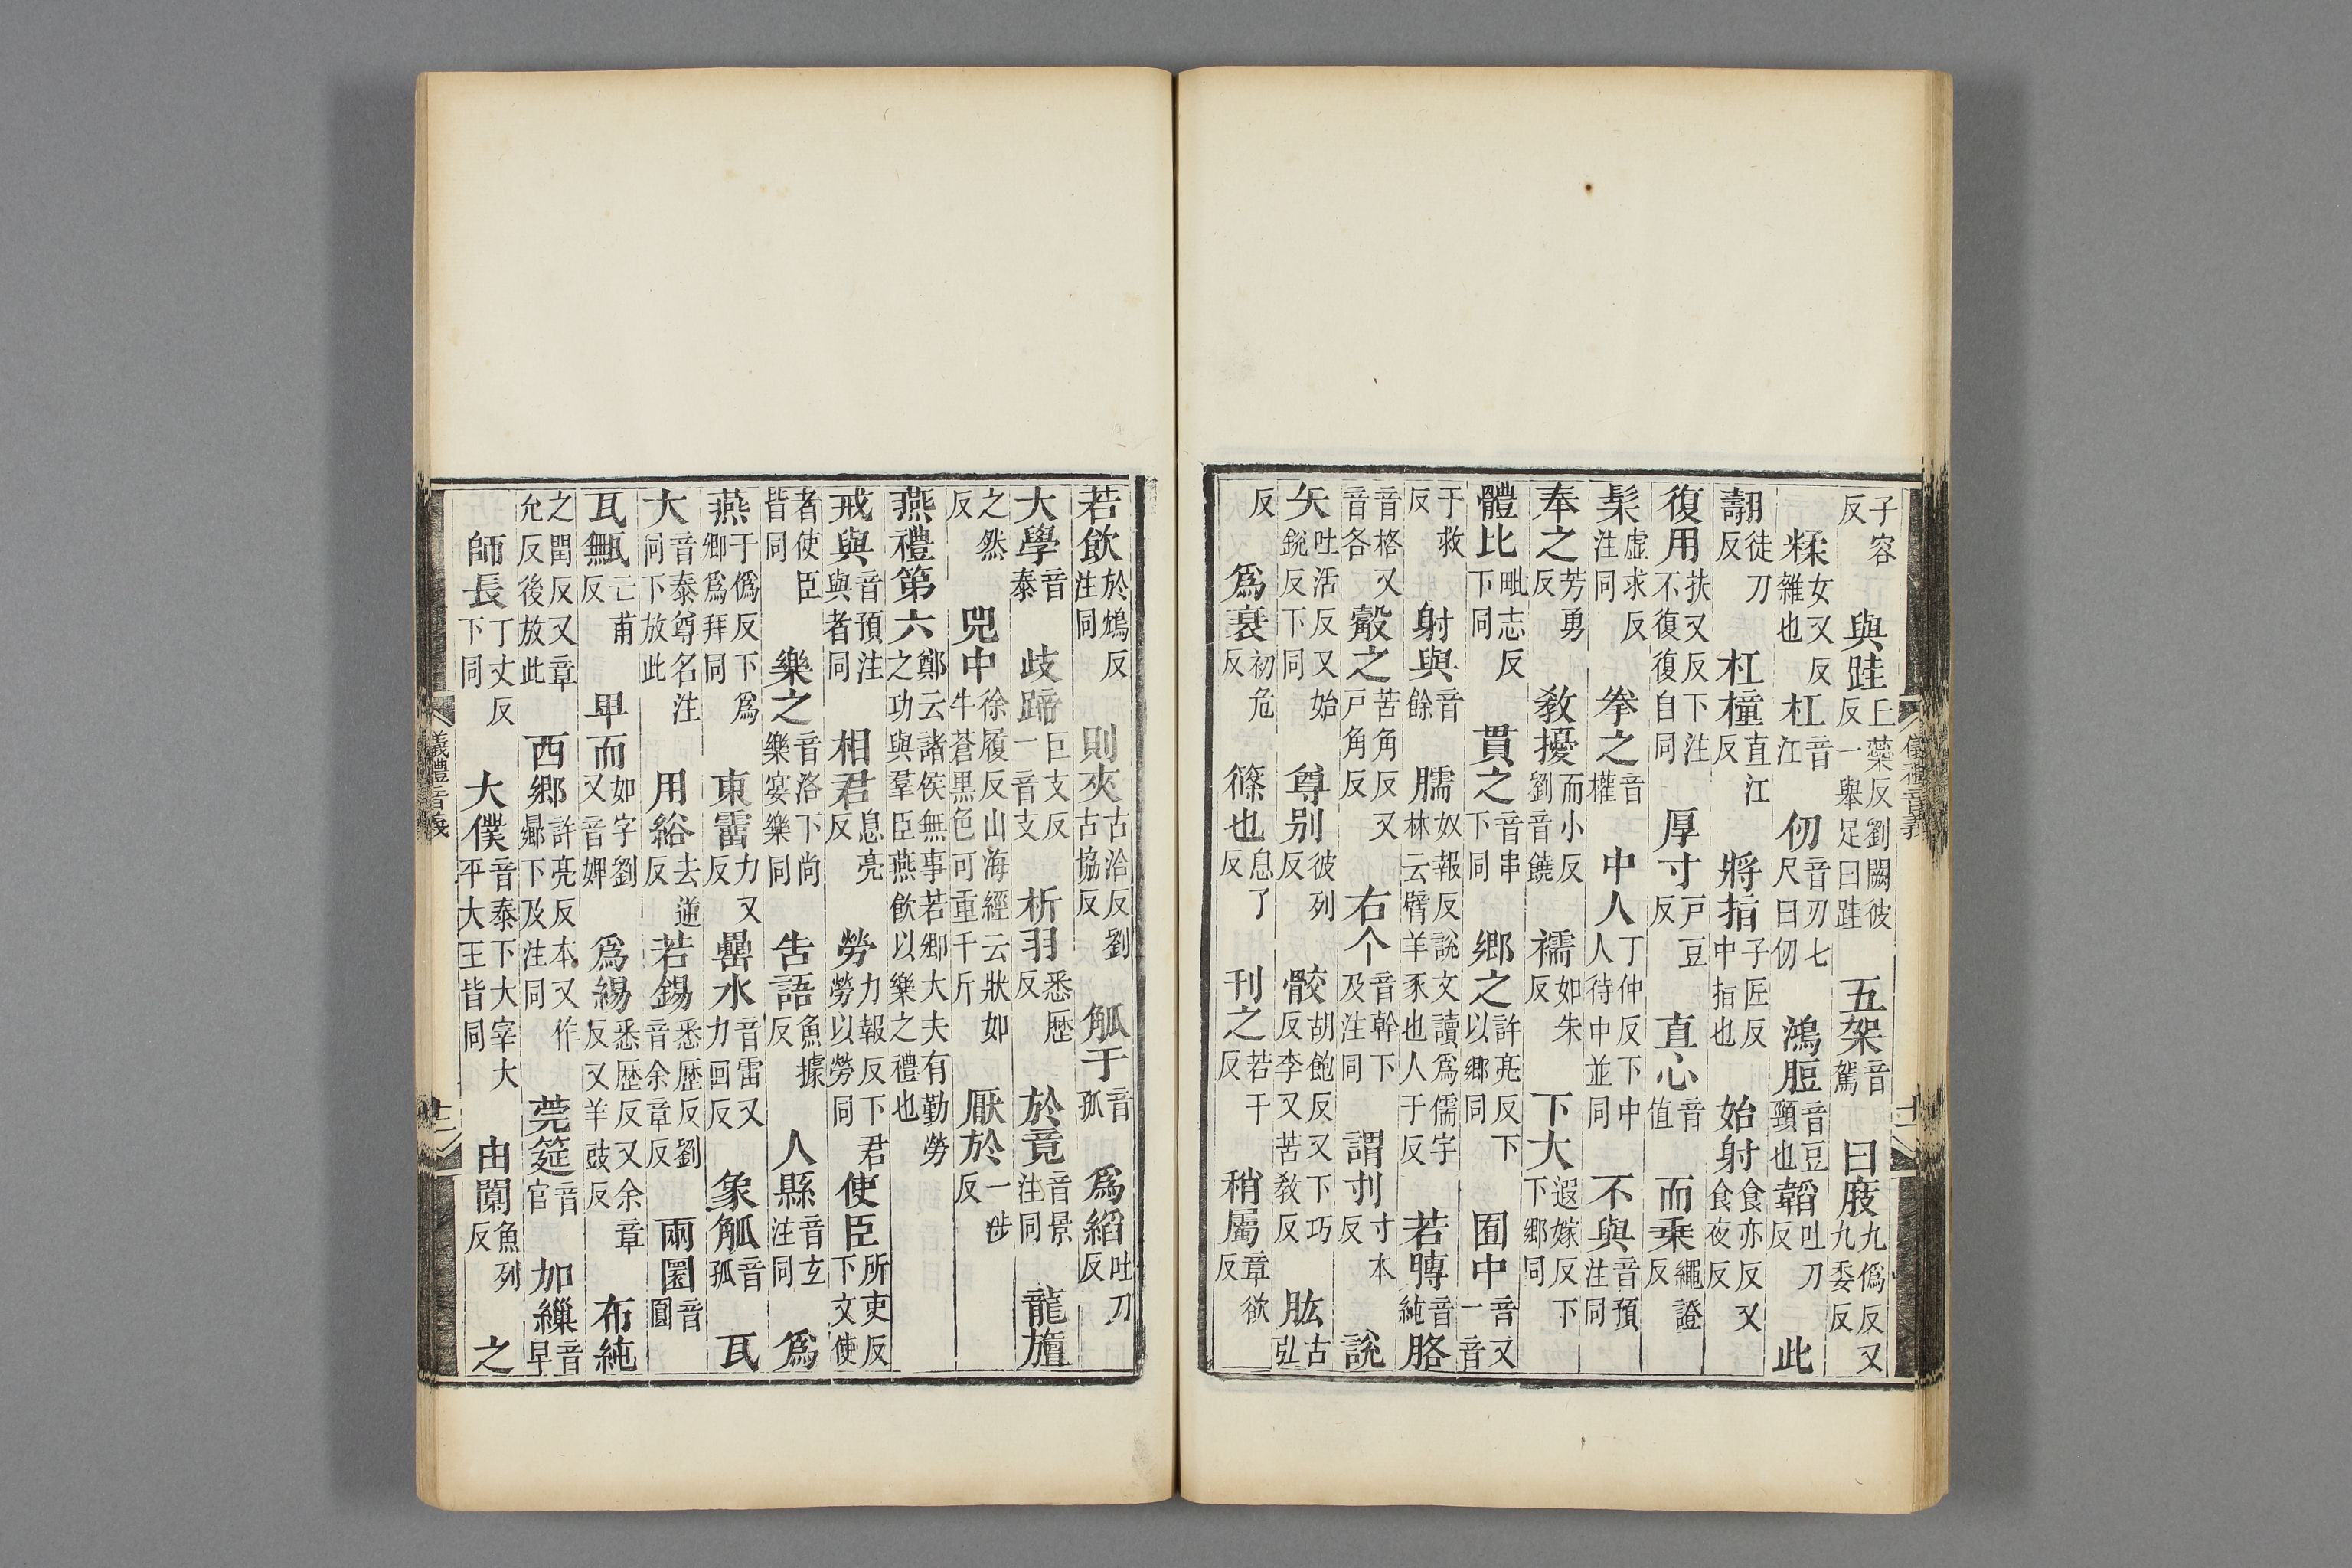 子容反 與跬上蘂反劉闕彼反一舉足曰跬 五架音駕 曰庪九僞反又九委反
糅女又反雜也 杠音江 仞音刃七尺曰仞 鴻脰音豆頸也 韜吐刀反 此
翿徒刀反 杠橦直江反 將指子匠反中指也 始射食亦反又食夜反
復用扶又反下注不復復自同 厚寸戶豆反 直心音值 而乘繩證反
髤虛求反注同 拳之音權 中人丁仲反下中人待中並同 不與音預注同
奉之芳勇反 敎擾而小反劉音饒 襦如朱反 下大遐嫁反下下鄉同
體比毗志反下同 貫之音串下同 鄉之許亮反下以鄉同 囿中音又一音
于救反 射與音餘 臑奴報反說文讀爲儒字林云臂羊豕也人于反 若膞音純 胳
音格又音各 觳之苦角反又戶角反 右个音幹下及注同 謂刌寸本反 說
矢吐活反又始銳反下同 尊別彼列反 骹胡飽反又下巧反李又苦敎反 肱古弘
反 爲衰初危反 篠也息了反 刊之若干反 稍屬章欲反
儀禮音義 十二
若飮於鴆反注同 則夾古洽反劉古協反 觚于音孤 爲縚吐刀反
大學音泰 歧蹄巨支反一音支 析羽悉歷反 於竟音景注同 龍旜
之然反 兕中徐履反山海經云狀如牛蒼黑色可重千斤 厭於一涉反
燕禮第六鄭云諸侯無事若卿大夫有勤勞之功與羣臣燕飮以樂之禮也
戒與音預注與者同 相君息亮反 勞力報反下君勞以勞同 使臣所吏反下文使
者使臣皆同 樂之音洛下尚樂宴樂同 告語魚據反 人縣音玄注同 爲
燕于僞反下爲卿爲拜同 東霤力又反 罍水音雷又力回反 象觚音孤 瓦
大音泰尊名注同下放此 用綌去逆反 若錫悉歷反劉音余章反 兩圜音圓
瓦甒亡甫反 卑而如字劉又音婢 爲緆悉歷反又余章反又羊豉反 布純
之閏反又章允反後放此 西鄉許亮反本又作曏下及注同 莞筵音官 加繅音早
師長丁丈反下同 大僕音泰下大宰大平大王皆同 由闑魚列反 之
儀禮音義 十二